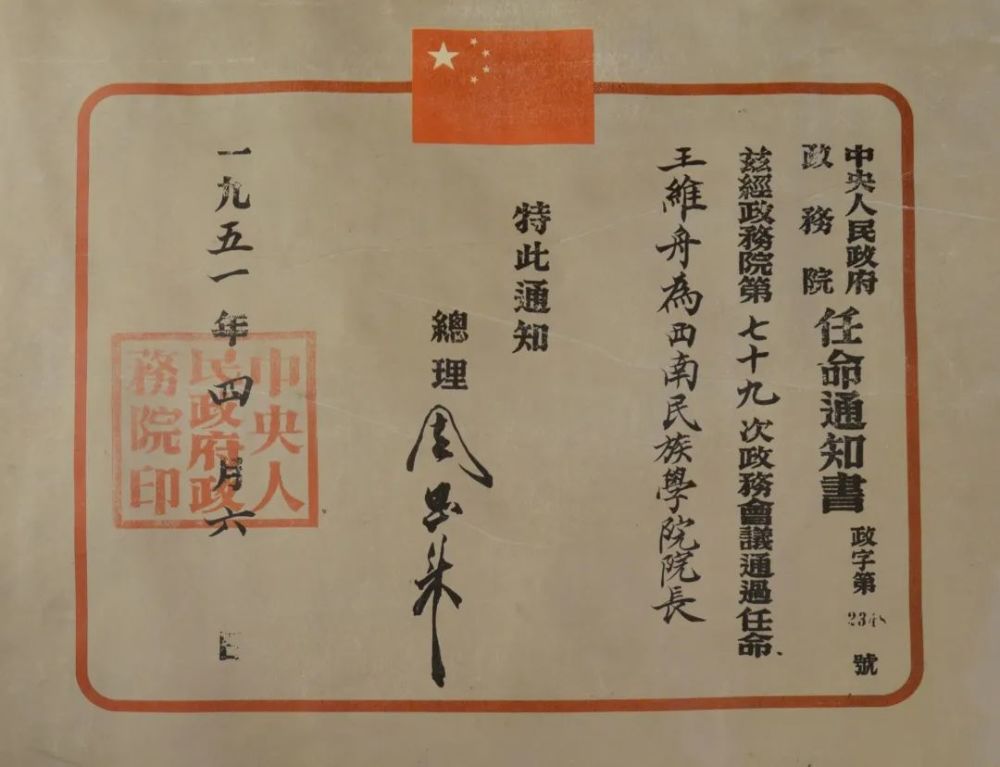 中央人民政府
政務院
任命通知書
政字第234號
茲經政務院第七十九次政務會議通過任命
王維舟為西南民族學院院長
特此通知
總理
周恩来
一九五一年四月六日
中央人
民政府政
務院印